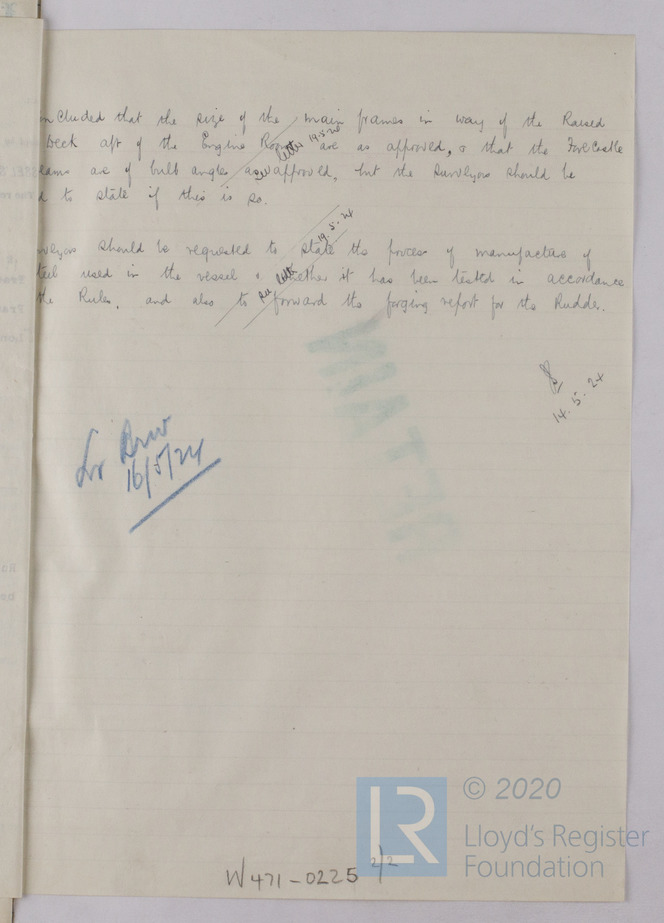 ncluded that the size of the main frames in way of the Raised
Deck aft of the Engine Room are as approved, & that the Forecastle
eams are of bulb angles as approved, but the Surveyors should be
d to state if this is so.
see letter 19.5.24
rveyors should be requested to state the process of manufacture of
teel used in the vessel & whether it has been tested in accordance
the Rules, and also to forward the forging report for the Rudder.
see letter 19.5.24
14.5.24
16/5/24
RETAIN
W471-0225 2/2
LR
© 2020
Lloyd's Register
Foundation